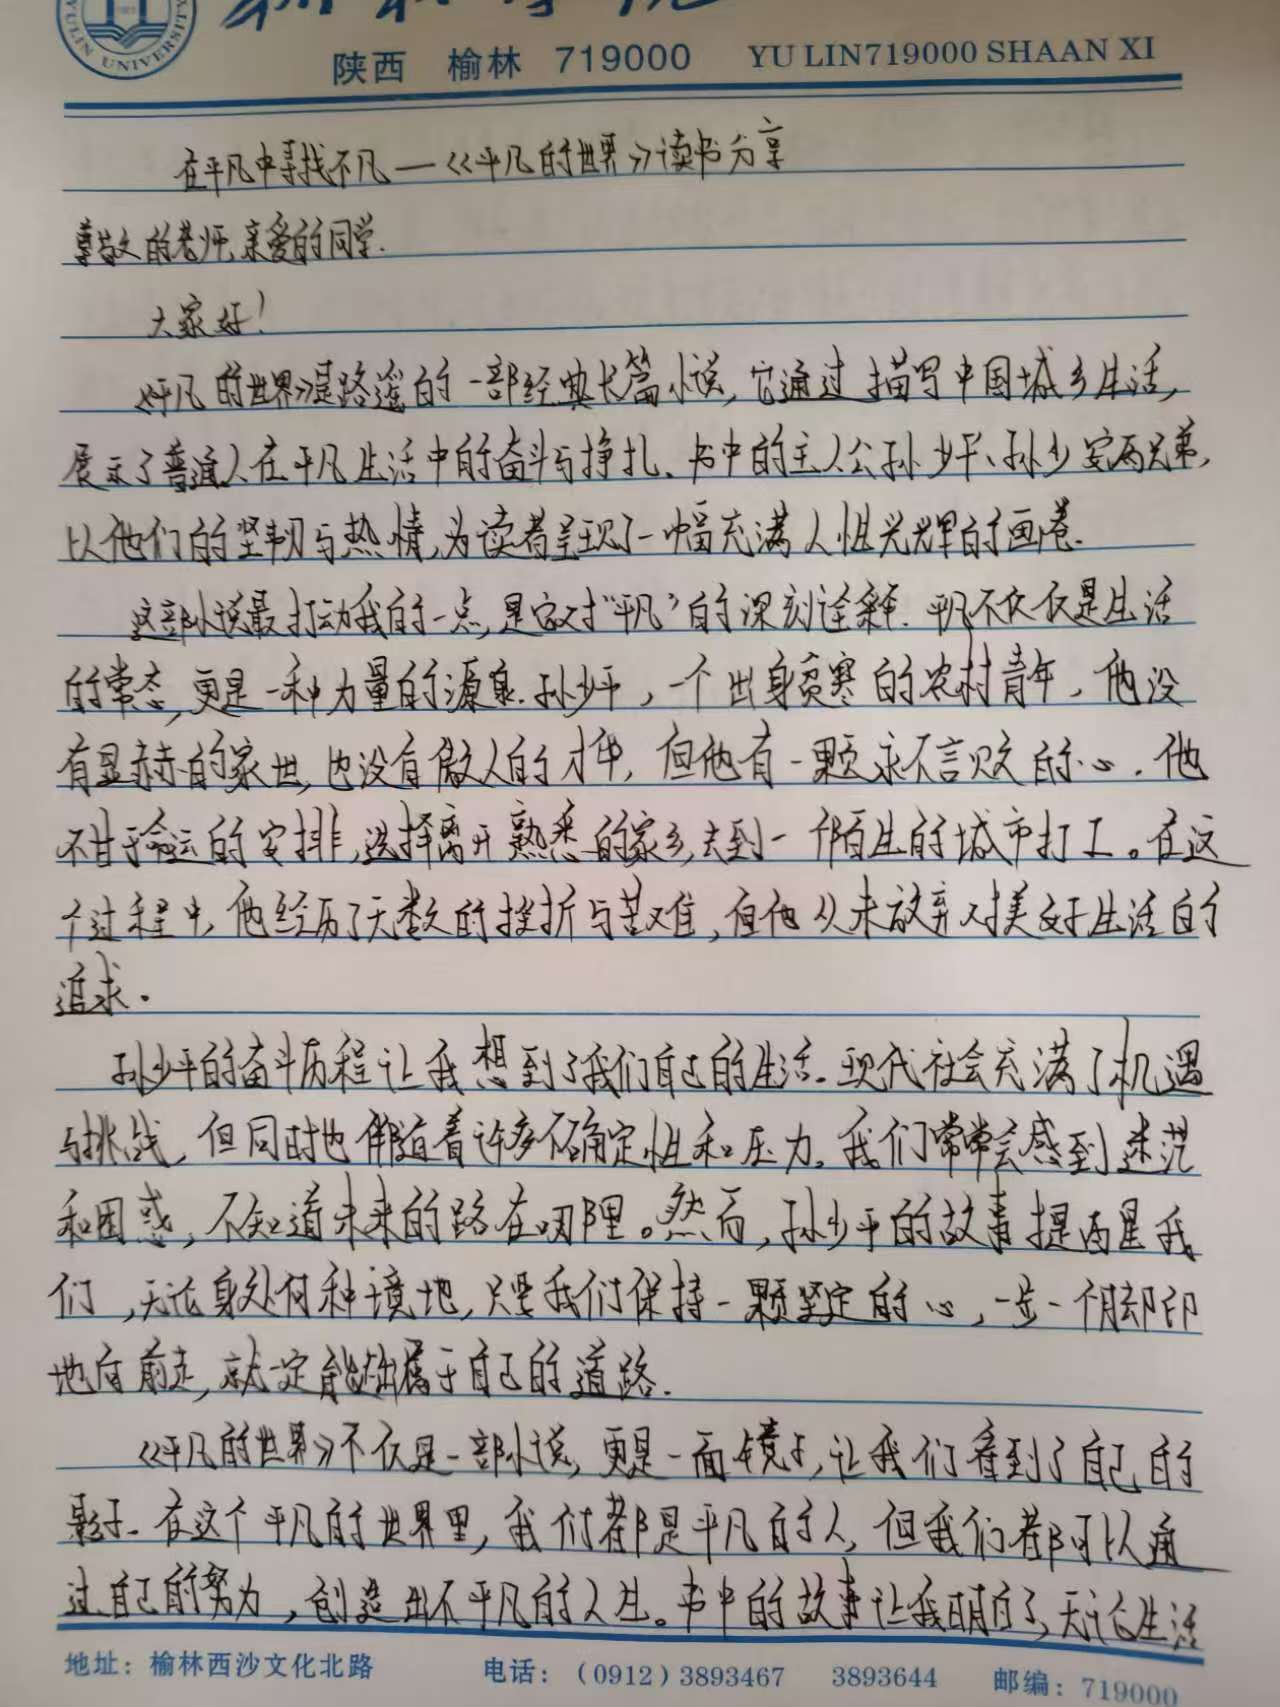 YULIN UNIVERSITY
陕西 榆林 719000 YU LIN719000 SHAAN XI
在平凡中寻找不凡—《平凡的世界》读书分享
尊敬的老师,亲爱的同学.
大家好!
《平凡的世界》是路遥的一部经典长篇小说,它通过描写中国城乡生活,
展示了普通人在平凡生活中的奋斗与挣扎.书中的主人公孙少平、孙少安两兄弟,
以他们的坚韧与热情,为读者呈现了一幅充满人性光辉的画卷.
这部小说最打动我的一点,是它对"平凡"的深刻诠释.平凡不仅仅是生活
的常态,更是一种力量的源泉.孙少平,一个出身贫寒的农村青年,他没
有显赫的家世,也没有傲人的才华,但他有一颗永不言败的心.他
不甘于命运的安排,选择离开熟悉的家乡,去到一个陌生的城市打工。在这
个过程中,他经历了无数的挫折与苦难,但他从未放弃对美好生活的
追求.
孙少平的奋斗历程让我想到了我们自己的生活.现代社会充满了机遇
与挑战,但同时也伴随着许多不确定性和压力.我们常常会感到迷茫
和困惑,不知道未来的路在哪里。然而,孙少平的故事提醒我
们,无论身处何种境地,只要我们保持一颗坚定的心,一步一个脚印
地向前走,就一定能走出属于自己的道路.
《平凡的世界》不仅是一部小说,更是一面镜子,让我们看到了自己的
影子.在这个平凡的世界里,我们都是平凡的人,但我们都可以通
过自己的努力,创造出不平凡的人生。书中的故事让我明白了,无论生活
地址:榆林西沙文化北路 电话:(0912)3893467 3893644 邮编:719000